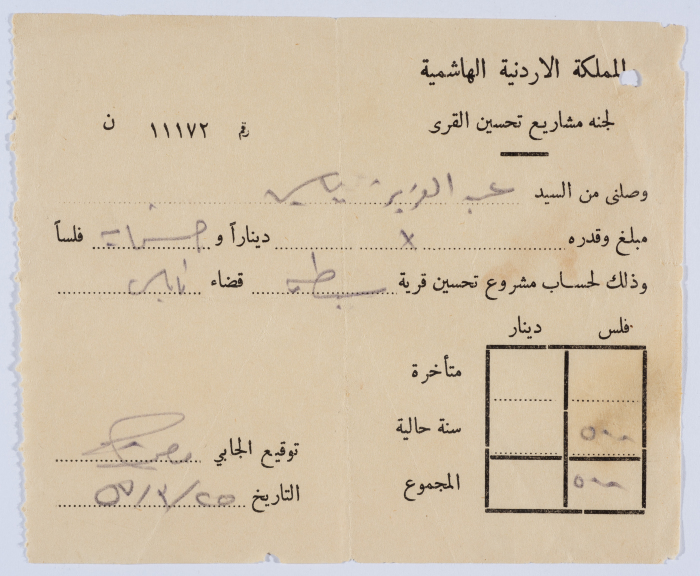 المملكة الاردنية الهاشمية
لجنه مشاريع تحسين القرى
رقم ١١١٧٢ ن
وصلنى من السيد عبد العزيز ياسين
مبلغ وقدره x ديناراً و خمسماية فلساً
وذلك لحساب مشروع تحسين قرية سبسطيه قضاء نابلس
فلس دينار
متأخرة
سنة حالية ٥٠٠
المجموع ٥٠٠
توقيع الجابي
التاريخ ٢٥/٣/٥٧